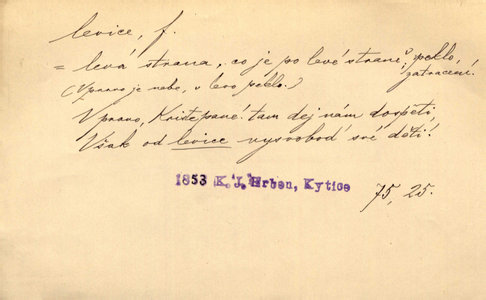 levice, f.
= levá strana, co je po levé straně; peklo,
zatracení.
(Vpravo je nebe, v levo peklo.)
Vpravo, Kriste pane! tam dej nám dospěti,
Však od levice vysvoboď své děti!
1853 K. J. Erben, Kytice
75, 25.